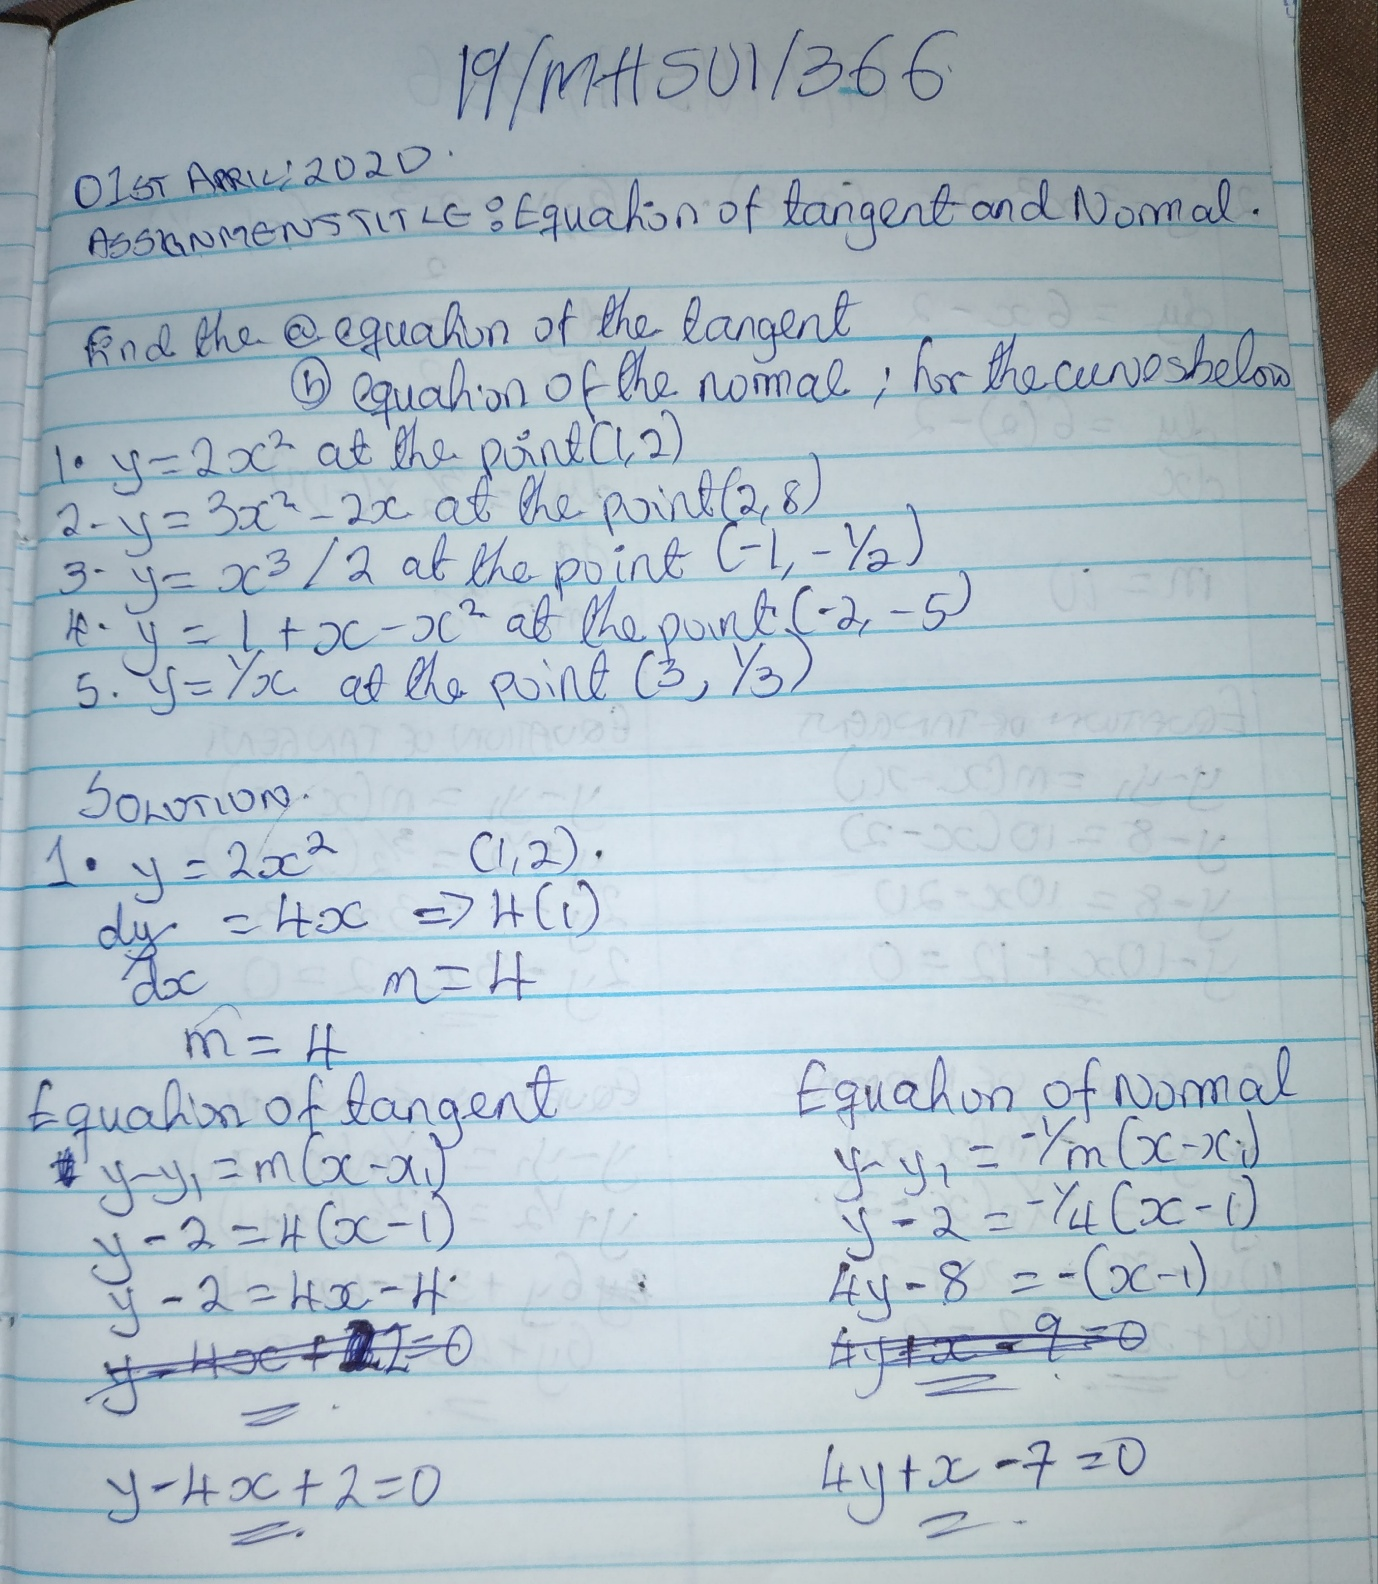 19/MHS01/366
01ST APRIL; 2020.
ASSIGNMENSTITLE: Equation of tangent and Normal.
Find the ⓐ equation of the tangent
ⓑ equation of the normal; for the curves below
1. y=2x² at the point(1,2)
2. y=3x²-2x at the point(2,8)
3. y= x³/2 at the point (-1, -1/2)
4. y = 1+x-x² at the point (-2, -5)
5. y=1/x at the point (3, 1/3)
SOLUTION.
1. y = 2x² (1,2).
dy = 4x => 4(1)
dx m=4
m = 4
Equation of tangent
y-y₁=m(x-x₁)
y-2=4(x-1)
y-2=4x-4
y-4x+2=0
Equation of Normal
y-y₁ = -1/m(x-x₁)
y-2 = -1/4(x-1)
4y-8 = -(x-1)
4y+x-9=0
4y+x-7=0